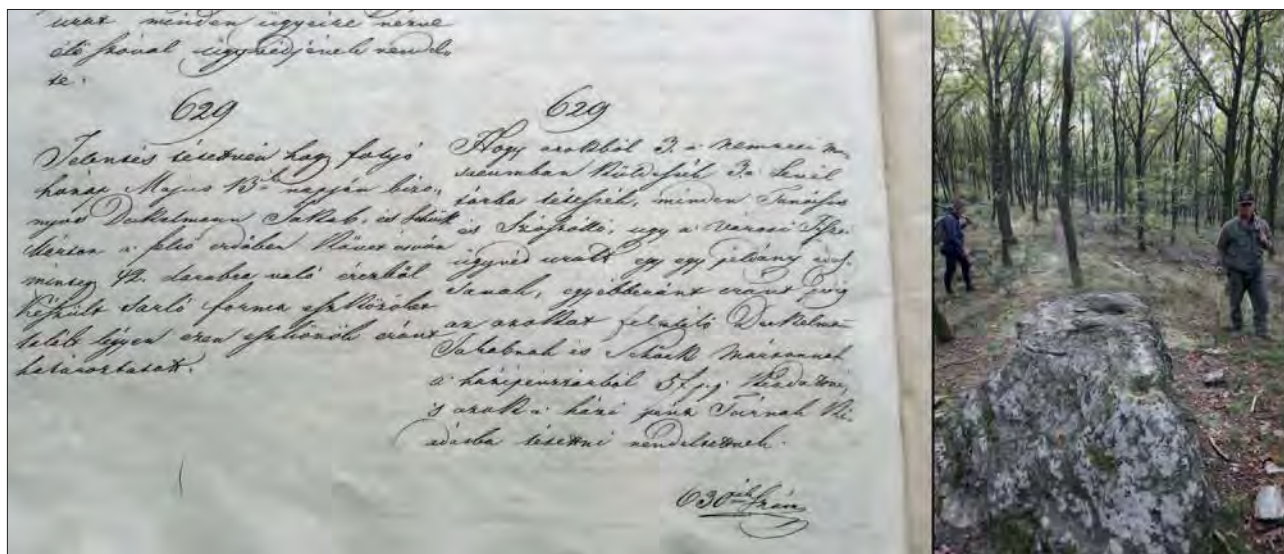 urat minden ügyeire nézve
élő szóval ügyvédjének rendel-
te.
629
Jelentés tétetvén hogy folyó
hónap Május 13ik napján bizo-
nyos Deckelmann Jakab, és
Márton a felső erdőben követ ásván
mintegy 42. darabra való érczből
készült sarló forma eszközöket
lelt légyen ezen eszközök eránt
határoztatott.
629
Hogy azokból 3. a nemzeti mu-
seumban küldessék 3. a Levél
tárba tétessék, minden Tanácsos
és Szószólló, úgy a városi Fő
ügyvéd urak egy egy példány
sanak, egyébberánt eránt pedig
az azokat felnyitó Deckelma
Jakabnak és Schaek Mártonnak
a házi pénztárból 5 f.p.p. kiadatni,
s azok a házi pénz Tárnak ki-
adásba tétetni rendeltetnek.
630ik szám